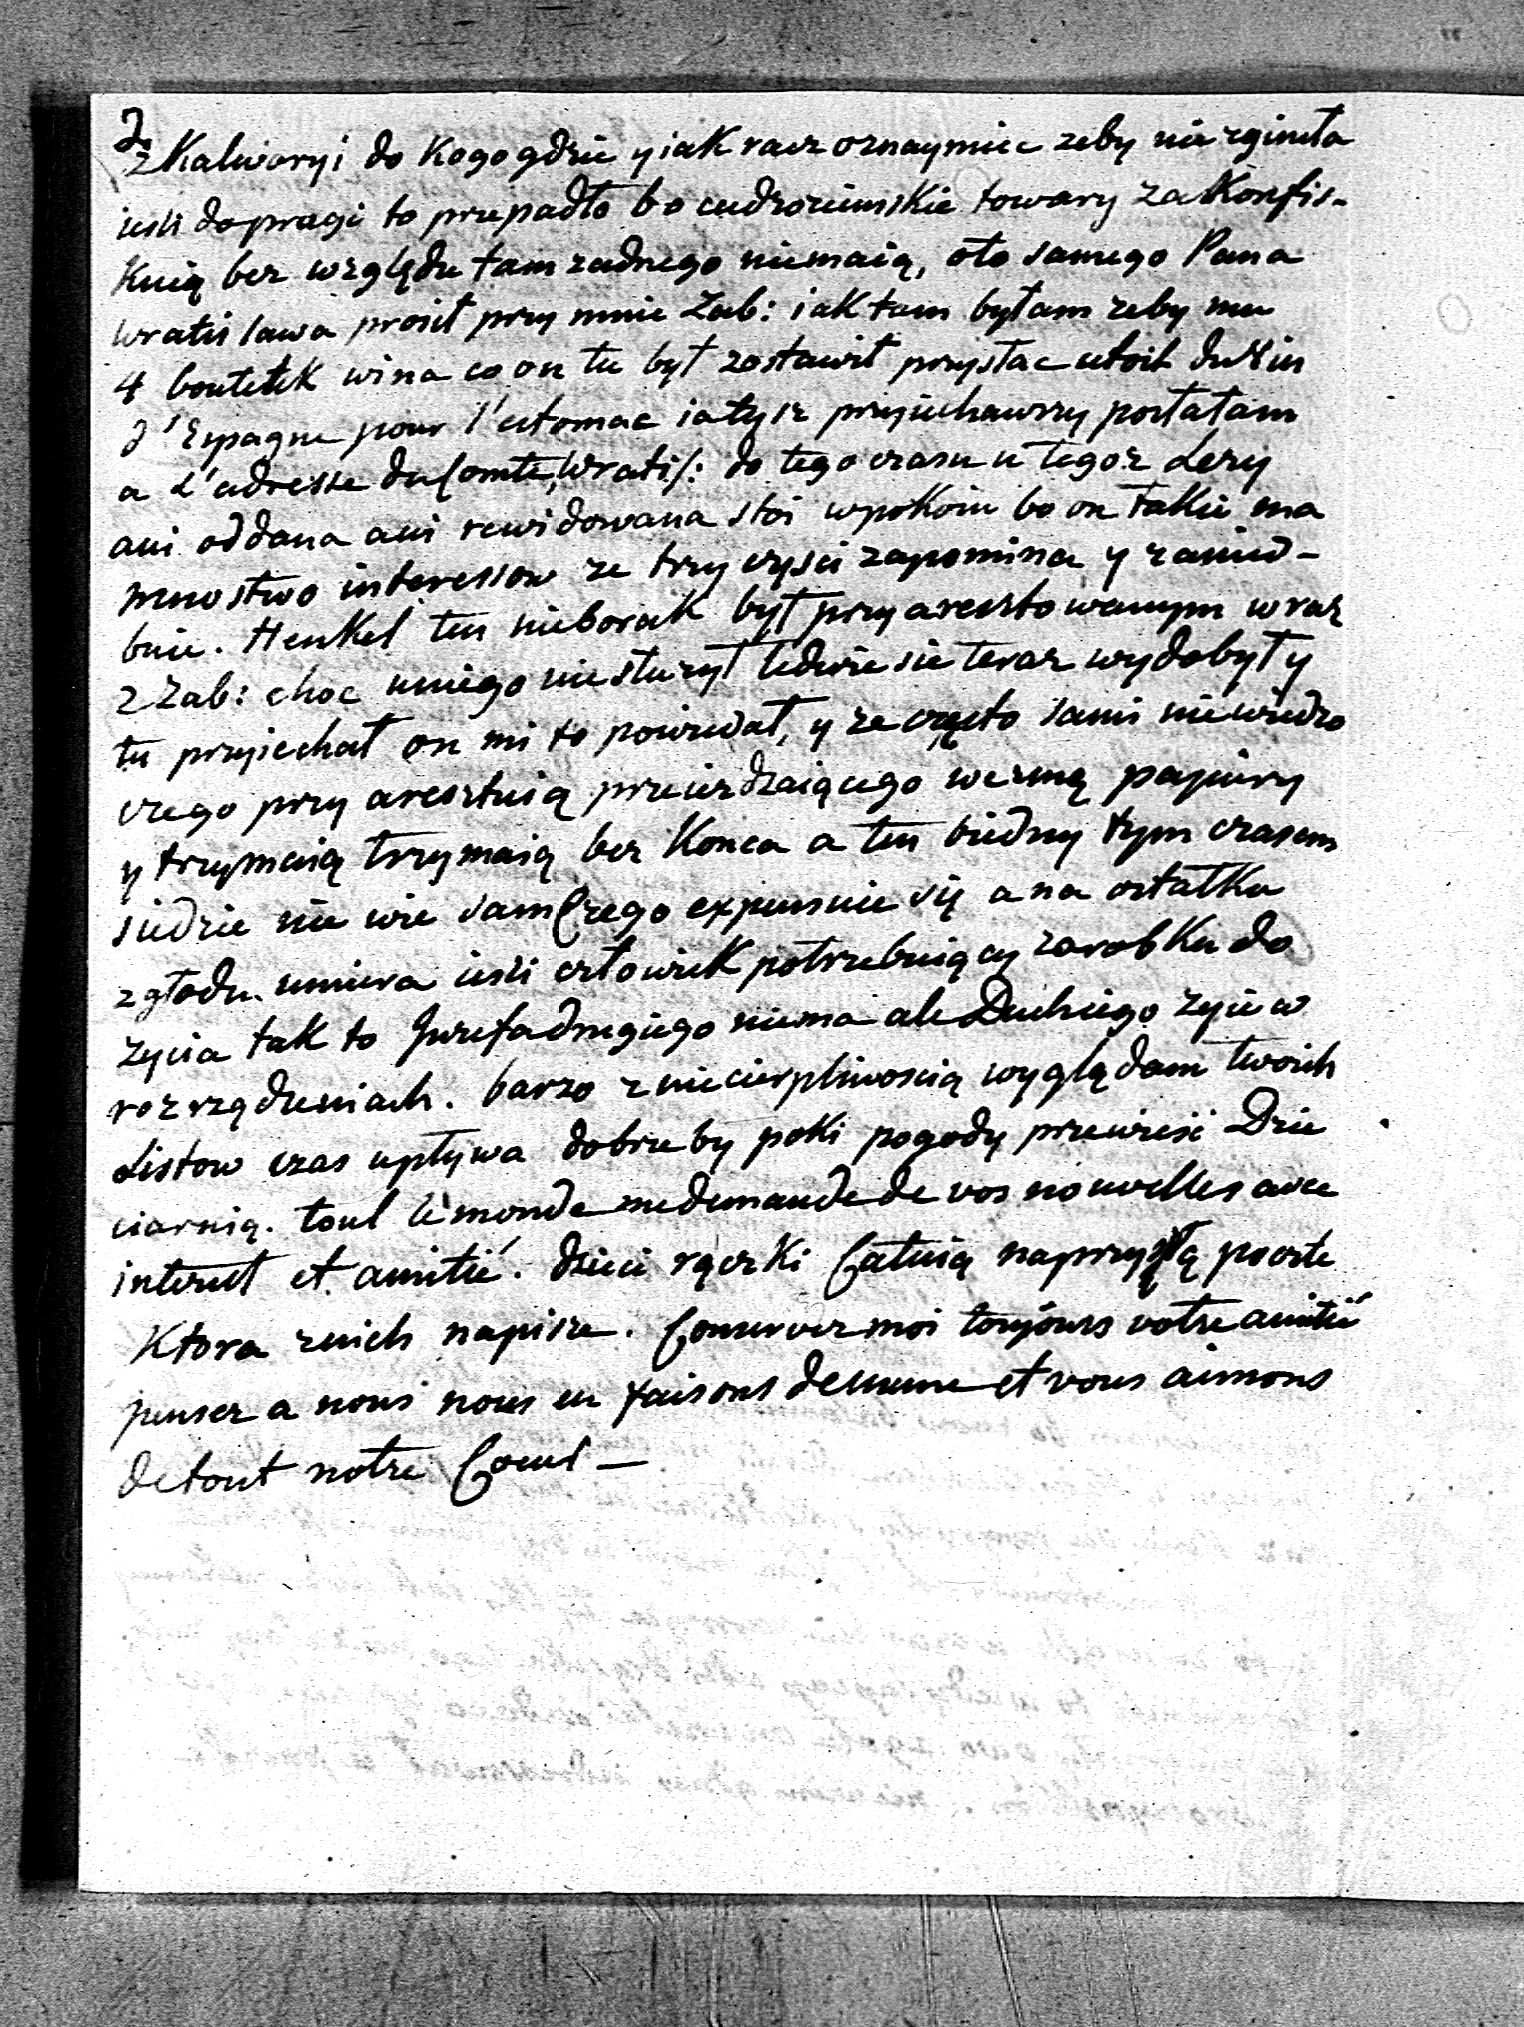 2.
z Kalwaryi do kogo gdzie y iak racz oznaymic zeby nie zgineła
iesli do pragi to przepadło bo cudzoziemskie towary za Konfis-
Kuią bez względu tam zadnego niemaią, oto samego Pana
wratis lawa prosił przy mnie Zab: iak tam byłam zeby mu
4 boutelek wina co on tu był zostawił przysłac etoit du Vin
d'Espagne pour l'estomac ia tysz przyiechawszy posłałam
a l'adresse du Comte Wratis: do tego czasu u tegoz Lezy
ani oddana ani rewidowana stoi w pokoiu bo on takie ma
mnostwo interessow ze trzy czysci zapomina y zanied-
buie. Henkel ten nieborak był przy aresztowanym wraz
z Zab: choc u niego nie słuzył ledwie sie teraz wydobył y
tu przyiechał on mi to powiedał, y ze często sami niewiedzo
czego przy aresztuią przeiezdzaiącego wezmą papiery
y trzymaią trzymaią bez Konca a ten biedny tym czasem
siedzie nie wie sam Czego expensuie się a na ostatku
z głodu umiera iesli człowiek potrzebuiący zarobku do
zycia tak to Jozefa drugiego niema ale Duch iego zyie w
rozrządzeniach. barzo z niecierpliwoscią wyglądam twoich
Listow czas upływa dobrze by poki pogody przewiesc Dzie
ciarnią. tout le monde me demande de vos nouvelles avec
interest et amitié. dzieci rączki Całuią na przyszłą poczte
Ktora z nich napisze. Conservez moi toujours votre amitié
penser a nous nous en faisons de meme et vous aimons
de tout notre Coeur —